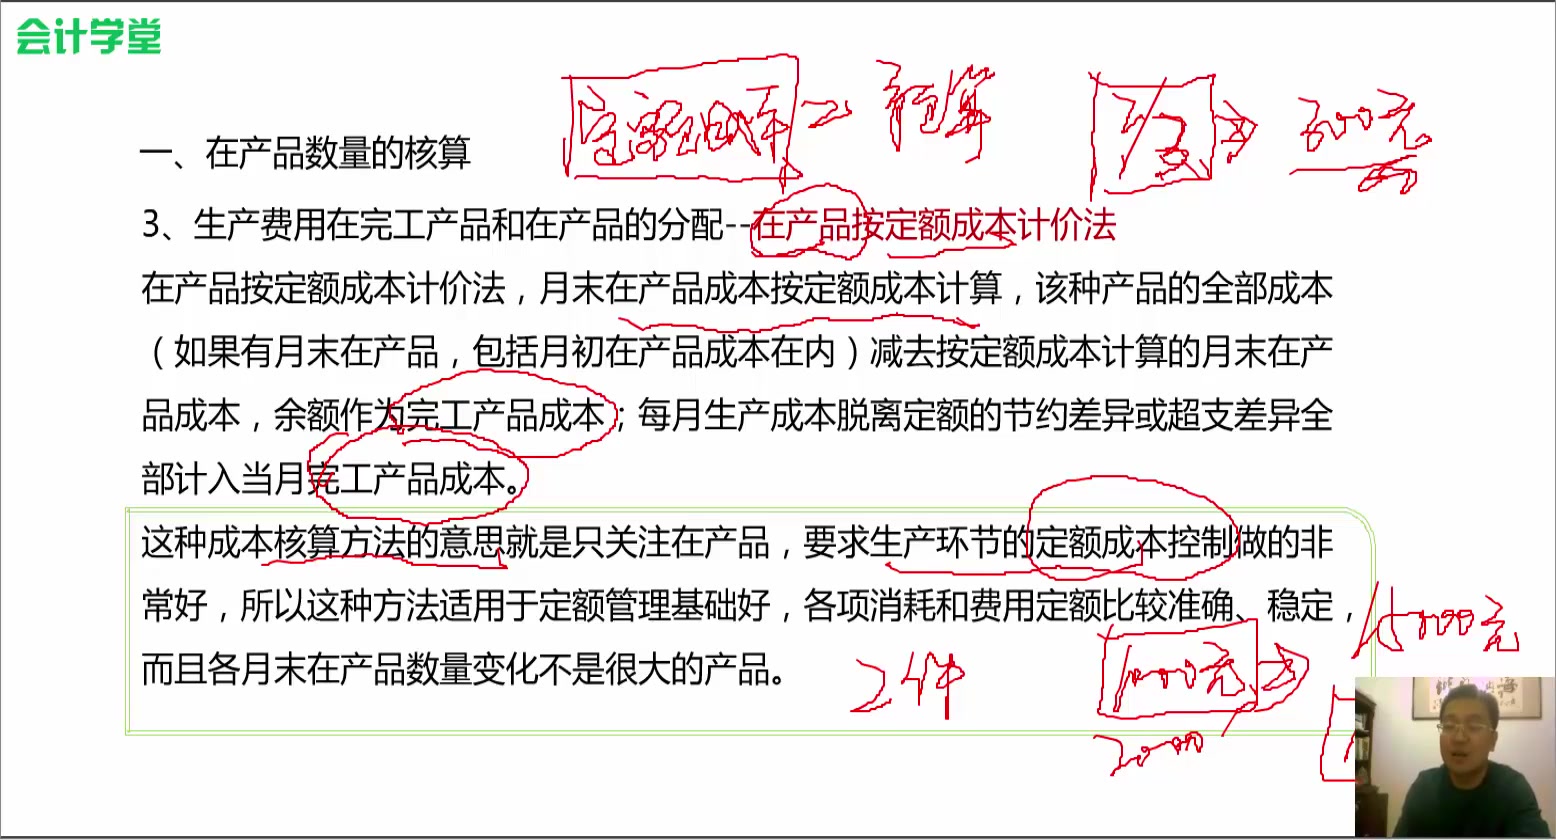 会计学堂
定额成本 预算
500元
一、在产品数量的核算
3、生产费用在完工产品和在产品的分配--在产品按定额成本计价法
在产品按定额成本计价法，月末在产品成本按定额成本计算，该种产品的全部成本
（如果有月末在产品，包括月初在产品成本在内）减去按定额成本计算的月末在产
品成本，余额作为完工产品成本；每月生产成本脱离定额的节约差异或超支差异全
部计入当月完工产品成本。
这种成本核算方法的意思就是只关注在产品，要求生产环节的定额成本控制做的非
常好，所以这种方法适用于定额管理基础好，各项消耗和费用定额比较准确、稳定，
而且各月末在产品数量变化不是很大的产品。
2件